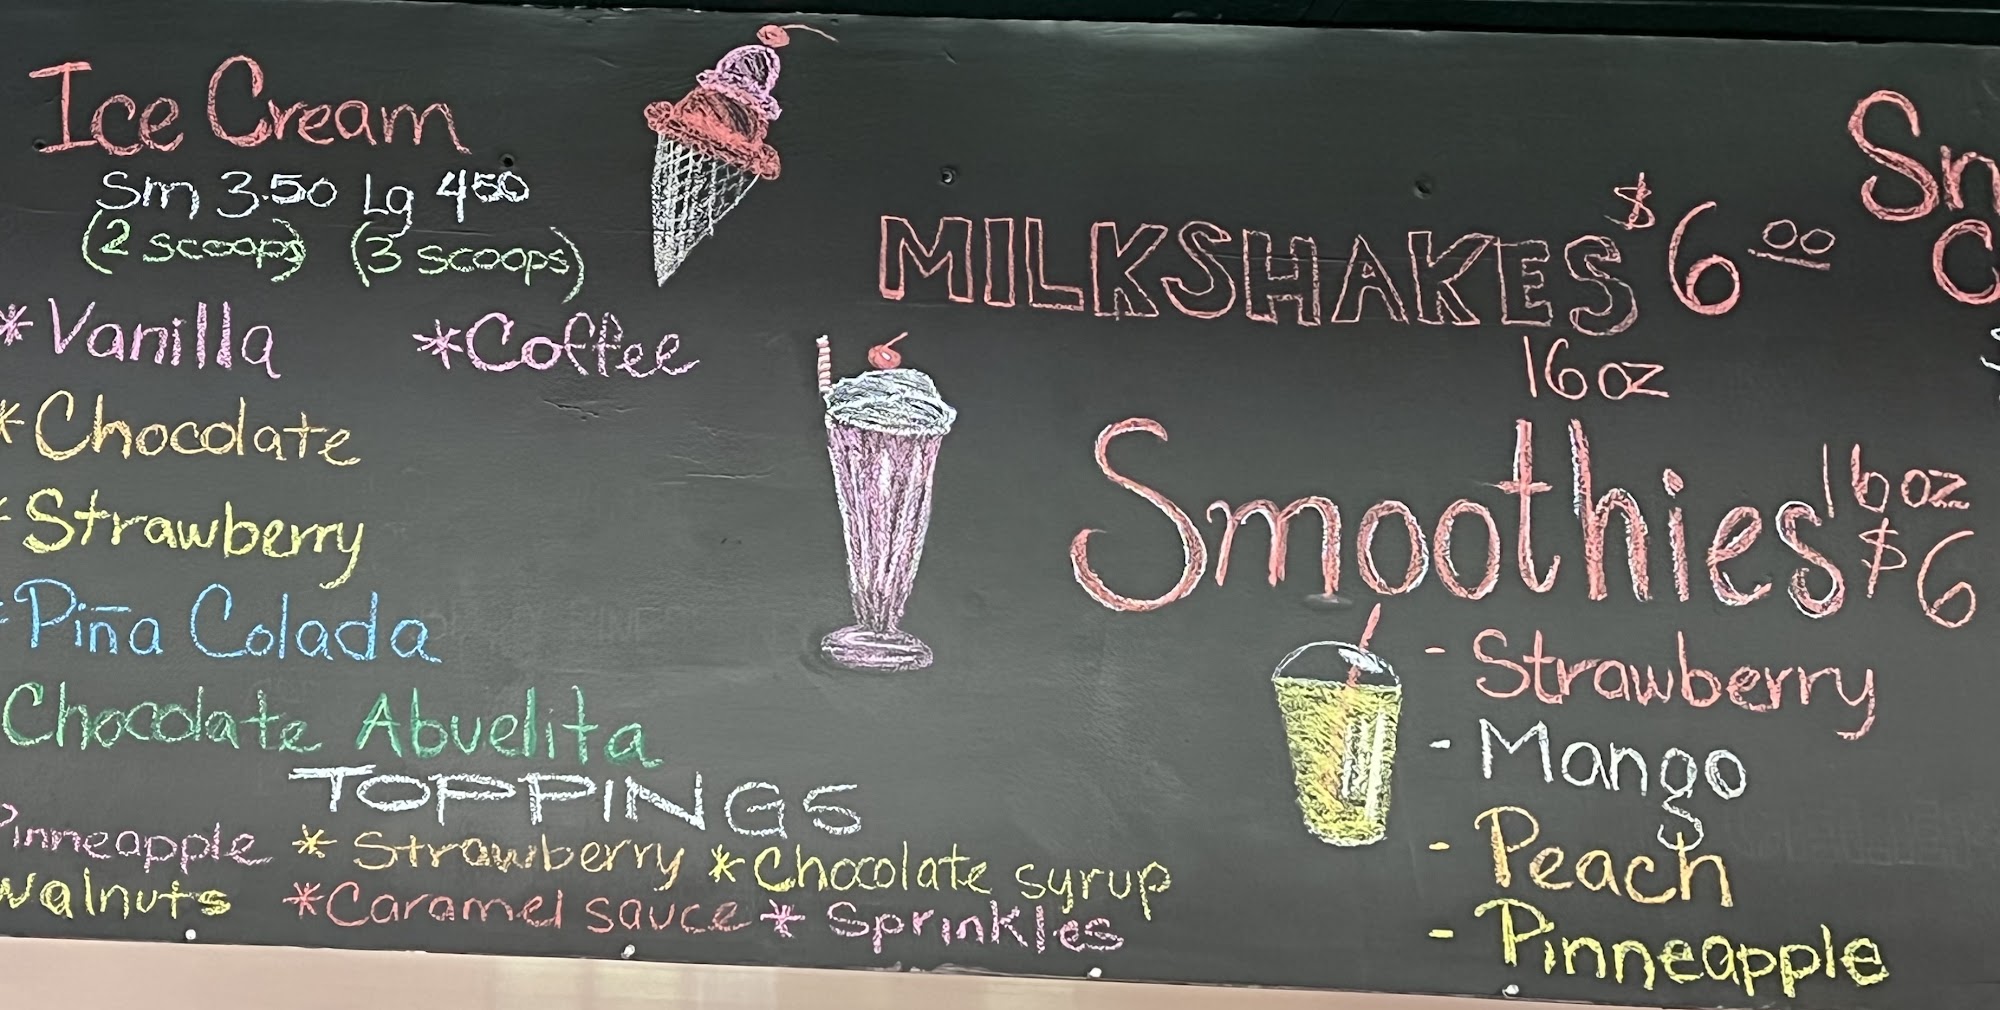 Ice Cream
Sm 3.50 Lg 4.50
(2 scoops) (3 scoops)
*Vanilla *Coffee
*Chocolate
*Strawberry
*Piña Colada
Chocolate Abuelita
TOPPINGS
Pinneapple * Strawberry * Chocolate syrup
Walnuts *Caramel sauce * Sprinkles
MILKSHAKES $6.00
16 oz
Smoothies 16 oz
$6
- Strawberry
- Mango
- Peach
- Pinneapple